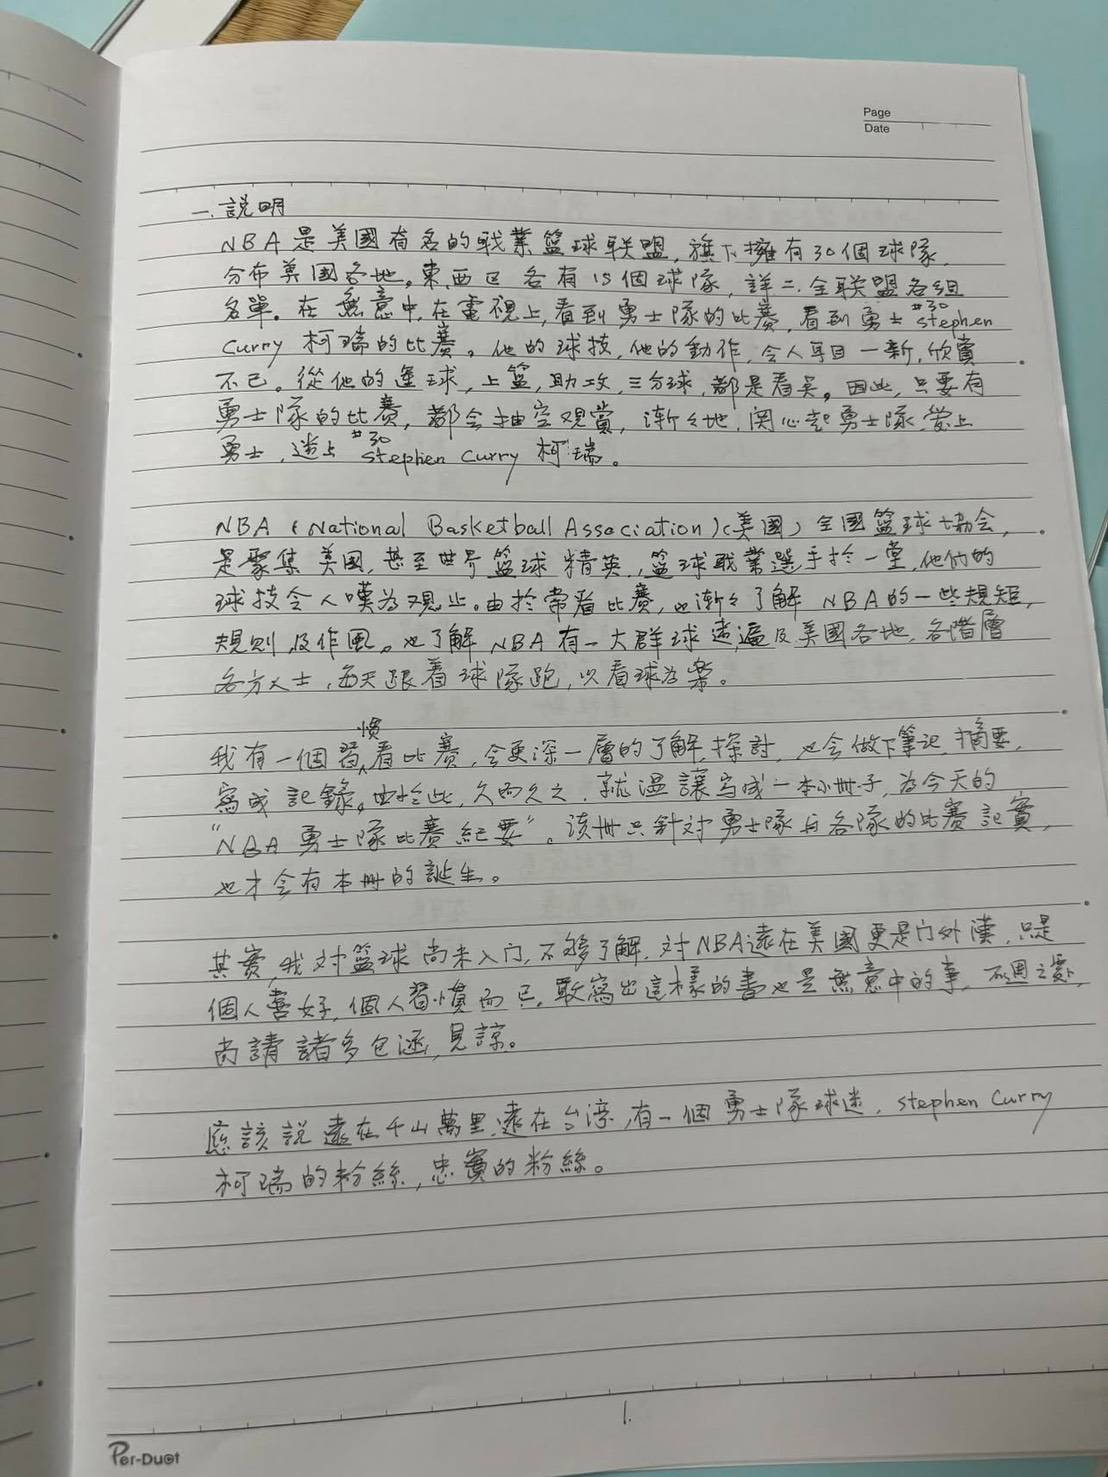 Page
Date
一. 說明
NBA 是美國有名的職業籃球联盟, 旗下擁有30個球隊,
分布美國各地。東,西区各有15個球隊, 詳二.全联盟各組
名單。在無意中,在電視上,看到勇士隊的比賽,看到勇士#30 stephen
Curry 柯瑞的比賽。他的球技,他的動作,令人耳目一新,欣賞
不已。從他的運球,上籃,助攻,三分球,都是看矣。因此,只要有
勇士隊的比賽, 都会抽空观賞, 漸々地,関心起勇士隊,愛上
勇士,迷上#30 stephen Curry 柯瑞。
NBA (National Basketball Association)(美國) 全國籃球協会,
是聚集美國,甚至世界籃球精英,籃球職業選手於一堂,他们的
球技令人嘆為观止。由於常看比賽,也漸々了解 NBA的一些規矩,
規則及作風。也了解 NBA 有一大群球迷,遍及美國各地,各階層
各方人士,每天跟着球隊跑,以看球為樂。
我有一個習慣,看比賽,会更深一層的了解,探討,也会做下筆記,摘要,
寫成記錄。由於此,久而久之,就讓寫成一本小冊子,為今天的
"NBA 勇士隊比賽紀要"。該冊只針对勇士隊与各隊的比賽記實,
也才会有本冊的誕生。
其實,我对籃球尚未入门,不够了解,对NBA遠在美國更是门外漢,只是
個人喜好,個人習慣而已,敢寫出這樣的書也是無意中的事,不週之處,
尚請諸多包涵,見諒。
應該說遠在千山萬里,遠在台湾,有一個勇士隊球迷, stephen Curry
柯瑞的粉絲,忠實的粉絲。
1.
Per-Duet